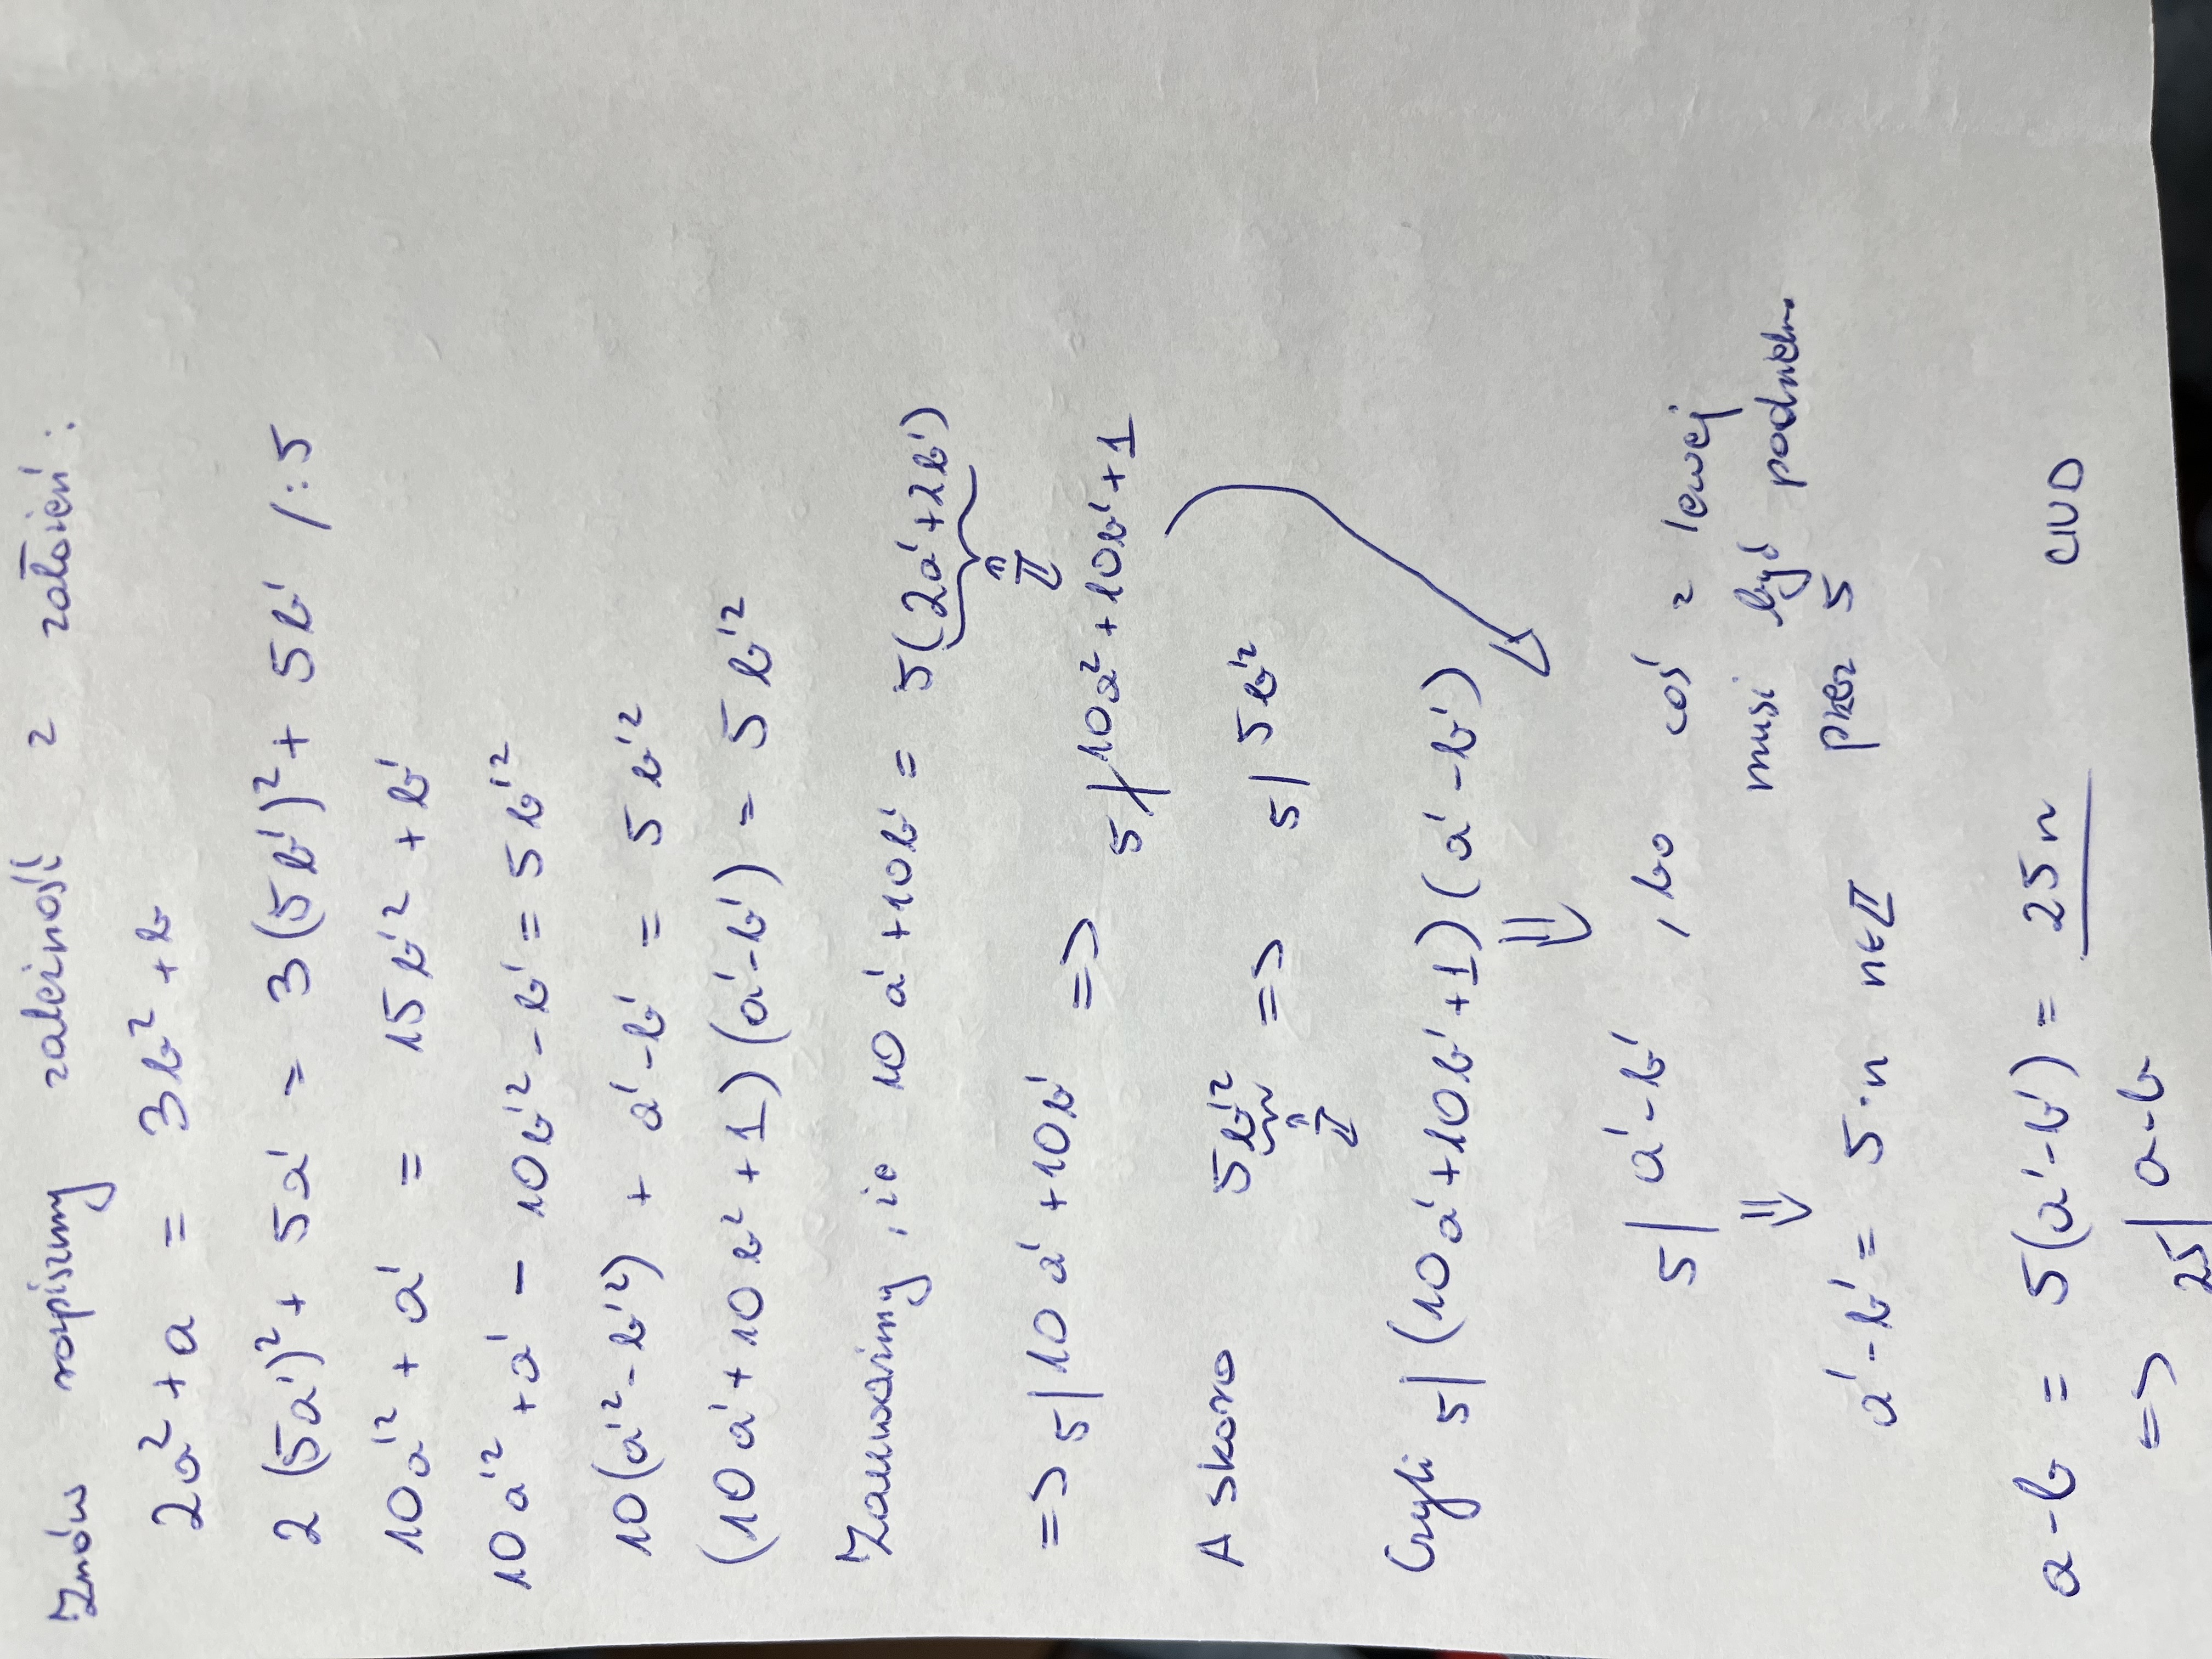 Znów rozpiszmy zależność z założeń:
2a² + a = 3b² + b
2(5a')² + 5a' = 3(5b')² + 5b' /:5
10a'² + a' = 15b'² + b'
10a'² + a' - 10b'² - b' = 5b'²
10(a'² - b'²) + a' - b' = 5b'²
(10a' + 10b² + 1)(a' - b') = 5b'²
Zauważmy, że 10a' + 10b' = 5(2a' + 2b')
∈
ℤ
=> 5 | 10a' + 10b' => 5 ∤ 10a² + 10b' + 1
A skoro 5b'² => 5 | 5b'²
∈
ℤ
Czyli 5 | (10a' + 10b' + 1)(a' - b')
⇓
5 | a' - b' , bo coś z lewej
musi być podzieln.
przez 5
⇓
a' - b' = 5·n n∈ℤ
a - b = 5(a' - b') = 25n CUD
=> 25 | a - b